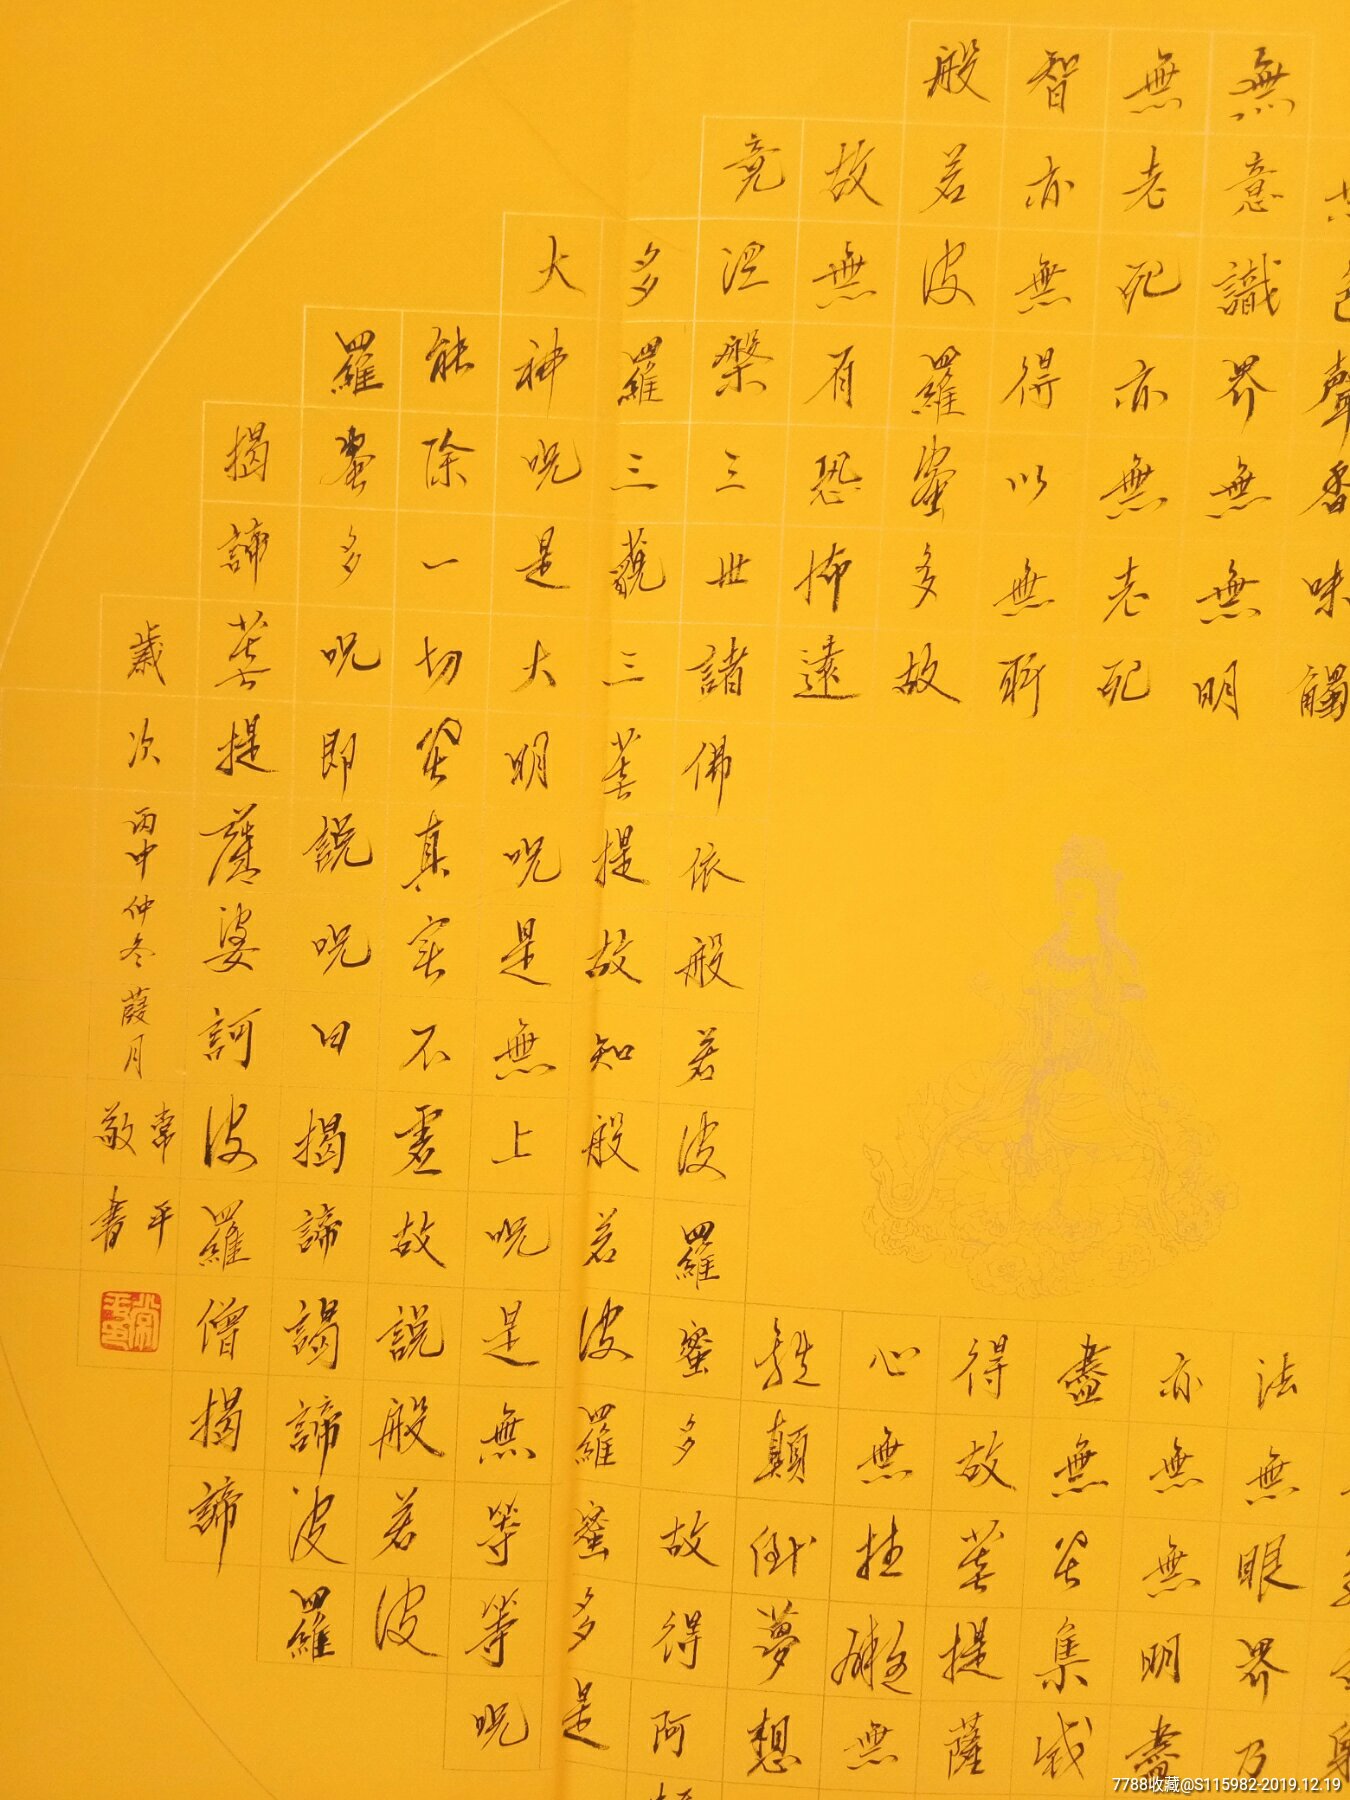 色聲香味觸法無眼界乃
無意識界無無明亦無無明盡
無老死亦無老死盡無苦集滅
智亦無得以無所得故菩提薩
般若波羅蜜多故心無挂礙無
故無有恐怖遠離顛倒夢想
竟涅槃三世諸佛依般若波羅蜜多故得阿
多羅三藐三菩提故知般若波羅蜜多是
大神呪是大明呪是無上呪是無等等呪
能除一切苦真实不虛故說般若波
羅蜜多呪即說呪曰揭諦謁諦波羅
揭諦菩提薩婆訶波羅僧揭諦
歲次丙申仲冬葭月常平敬書
7788收藏@S115982-2019.12.19